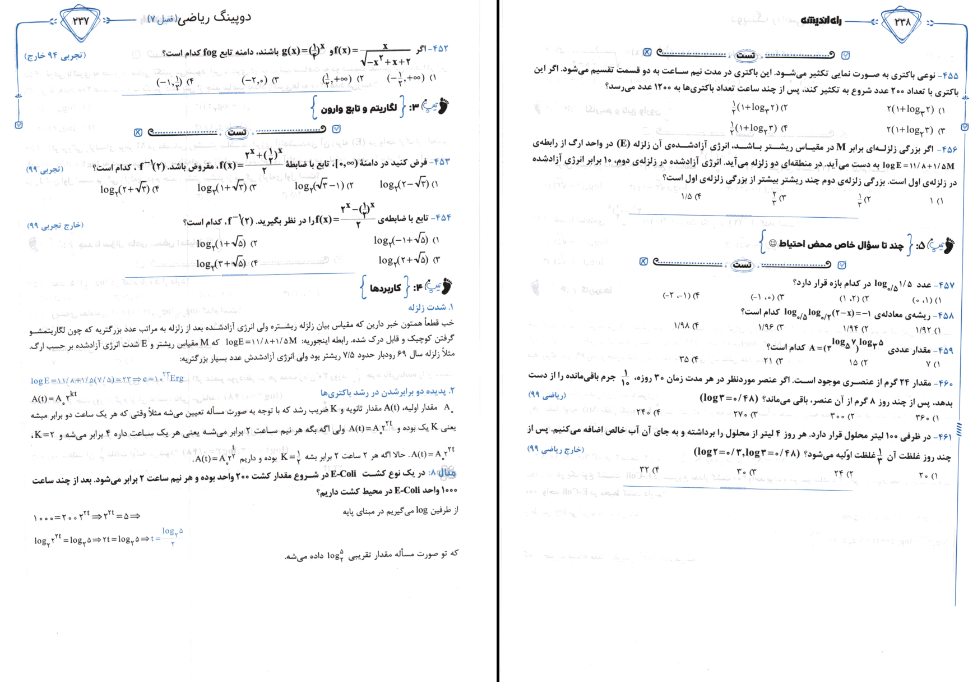 ۲۳۷
دوپینگ ریاضی (فصل ۷)
۴۵۲- اگر f(x)= x/√(-x²+x+2) و g(x)=(1/2)^x باشند، دامنه تابع fog کدام است؟ (تجربی ۹۴ خارج)
۱) (-1/2,+∞) ۲) (1/2,+∞) ۳) (-۲,۰) ۴) (-۱,1/2)
تیپ ۳: لگاریتم و تابع وارون
تست
۴۵۳- فرض کنید در دامنهٔ [۰,∞)، تابع با ضابطهٔ f(x)= (2^x+(1/2)^x)/2، مفروض باشد. f⁻¹(۲) ، کدام است؟ (تجربی ۹۹)
۱) log₂(2-√3) ۲) log₂(√3-1) ۳) log₂(1+√3) ۴) log₂(2+√3)
۴۵۴- تابع با ضابطه‌ی f(x)= (2^x-(1/2)^x)/2 را در نظر بگیرید. f⁻¹(۲)، کدام است؟ (خارج تجربی ۹۹)
۱) log₂(-1+√5) ۲) log₂(1+√5)
۳) log₂(2+√5) ۴) log₂(3+√5)
تیپ ۴: کاربردها
۱. شدت زلزله
خب قطعاً همتون خبر دارین که مقیاس بیان زلزله ریشتره ولی انرژی آزادشده بعد از زلزله به مراتب عدد بزرگتریه که چون لگاریتمشو
گرفتن کوچیک و قابل درک شده. رابطه اینجوریه: logE=۱۱/۸+۱/۵M که M مقیاس ریشتر و E شدت انرژی آزادشده بر حسب ارگ.
مثلاً زلزله سال ۶۹ رودبار حدود ۷/۵ ریشتر بود ولی انرژی آزادشدش عدد بسیار بزرگتریه:
logE=۱۱/۸+۱/۵(۷/۵)=۲۳⇒e=۱۰^۲۳ Erg
۲. پدیده دو برابرشدن در رشد باکتری‌ها
A(t)=A₀2^kt
A₀ مقدار اولیه، A(t) مقدار ثانویه و K ضریب رشد که با توجه به صورت مسأله تعیین می‌شه مثلاً وقتی که هر یک ساعت دو برابر میشه
یعنی K یک بوده و A(t)=A₀2^2t ولی اگه بگه هر نیم ساعت ۲ برابر می‌شه یعنی هر یک ساعت داره ۴ برابر می‌شه و K=۲،
A(t)=A₀2^2t. حالا اگه هر ۲ ساعت ۲ برابر بشه K=1/2 بوده و داریم A(t)=A₀2^(t/2).
مثال ۸: در یک نوع کشت E-Coli در شروع مقدار کشت ۲۰۰ واحد بوده و هر نیم ساعت ۲ برابر می‌شود. بعد از چند ساعت
۱۰۰۰ واحد E-Coli در محیط کشت داریم؟
۱۰۰۰=۲۰۰×2^2t⇒2^2t=۵⇒
از طرفین log می‌گیریم در مبنای پایه
log₂2^2t=log₂5⇒2t=log₂5⇒t= log₂5/2
که تو صورت مسأله مقدار تقریبی log₂5 داده می‌شه.
۲۳۸
راه اندیشه
تست
۴۵۵- نوعی باکتری به صورت نمایی تکثیر می‌شود. این باکتری در مدت نیم ساعت به دو قسمت تقسیم می‌شود. اگر این
باکتری با تعداد ۲۰۰ عدد شروع به تکثیر کند، پس از چند ساعت تعداد باکتری‌ها به ۱۲۰۰ عدد می‌رسد؟
۱) 2(1+log₃2) ۲) 1/2(1+log₃2)
۳) 2(1+log₂3) ۴) 1/2(1+log₂3)
۴۵۶- اگر بزرگی زلزلـه‌ای برابر M در مقیـاس ریشـتر باشـد، انرژی آزادشـده‌ی آن زلزله (E) در واحد ارگ از رابطه‌ی
logE=۱۱/۸+۱/۵M به دست می‌آید. در منطقه‌ای دو زلزله می‌آید. انرژی آزادشده در زلزله‌ی دوم، ۱۰ برابر انرژی آزادشده
در زلزله‌ی اول است. بزرگی زلزله‌ی دوم چند ریشتر بیشتر از بزرگی زلزله‌ی اول است؟
۱) ۱ ۲) 1/2 ۳) 2/3 ۴) ۱/۵
تیپ ۵: چند تا سؤال خاص محض احتیاط ☺
تست
۴۵۷- عدد log₀/₅ ۱/۵ در کدام بازه قرار دارد؟
۱) (۰,۱) ۲) (۱,۲) ۳) (-۱,۰) ۴) (-۲,-۱)
۴۵۸- ریشه‌ی معادله‌ی log₀/₅log₀/₂(۲-x)=-۱ کدام است؟
۱) ۱/۹۲ ۲) ۱/۹۴ ۳) ۱/۹۶ ۴) ۱/۹۸
۴۵۹- مقدار عددی A=(3^log₅7)^log₃5 کدام است؟
۱) ۷ ۲) ۱۵ ۳) ۲۱ ۴) ۳۵
۴۶۰- مقدار ۲۴ گرم از عنصـری موجود اسـت. اگر عنصر موردنظر در هر مدت زمان ۳۰ روزه، 1/10 جرم باقی‌مانده را از دست
بدهد، پس از چند روز ۸ گرم از آن عنصر، باقی می‌ماند؟ (log۳=۰/۴۸) (ریاضی ۹۹)
۱) ۳۶۰ ۲) ۳۰۰ ۳) ۲۷۰ ۴) ۲۴۰
۴۶۱- در ظرفی ۱۰۰ لیتر محلول قرار دارد. هر روز ۴ لیتر از محلول را برداشته و به جای آن آب خالص اضافه می‌کنیم. پس از
چند روز غلظت آن 1/3 غلظت اولیه می‌شود؟ (log۲=۰/۳,log۳=۰/۴۸) (خارج ریاضی ۹۹)
۱) ۲۰ ۲) ۲۴ ۳) ۳۰ ۴) ۳۲